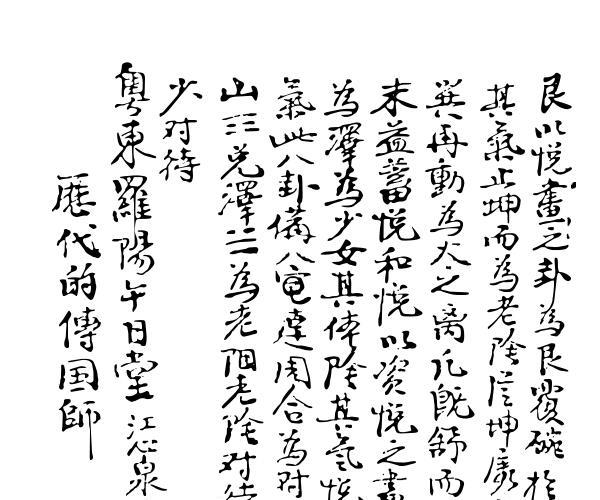 艮以悦畫之卦為艮賓碗於
其氣止坤而為老陰從坤
巽再動為火之离既舒而
末益蓄悦和悦以资悦之畫
為澤為少女其体陰其氣悦
氣此八卦備八宅達周合為对
山三兑澤二為老阳老陰对待
少对待
粤東羅陽午日堂江心泉
歷代的傳国師